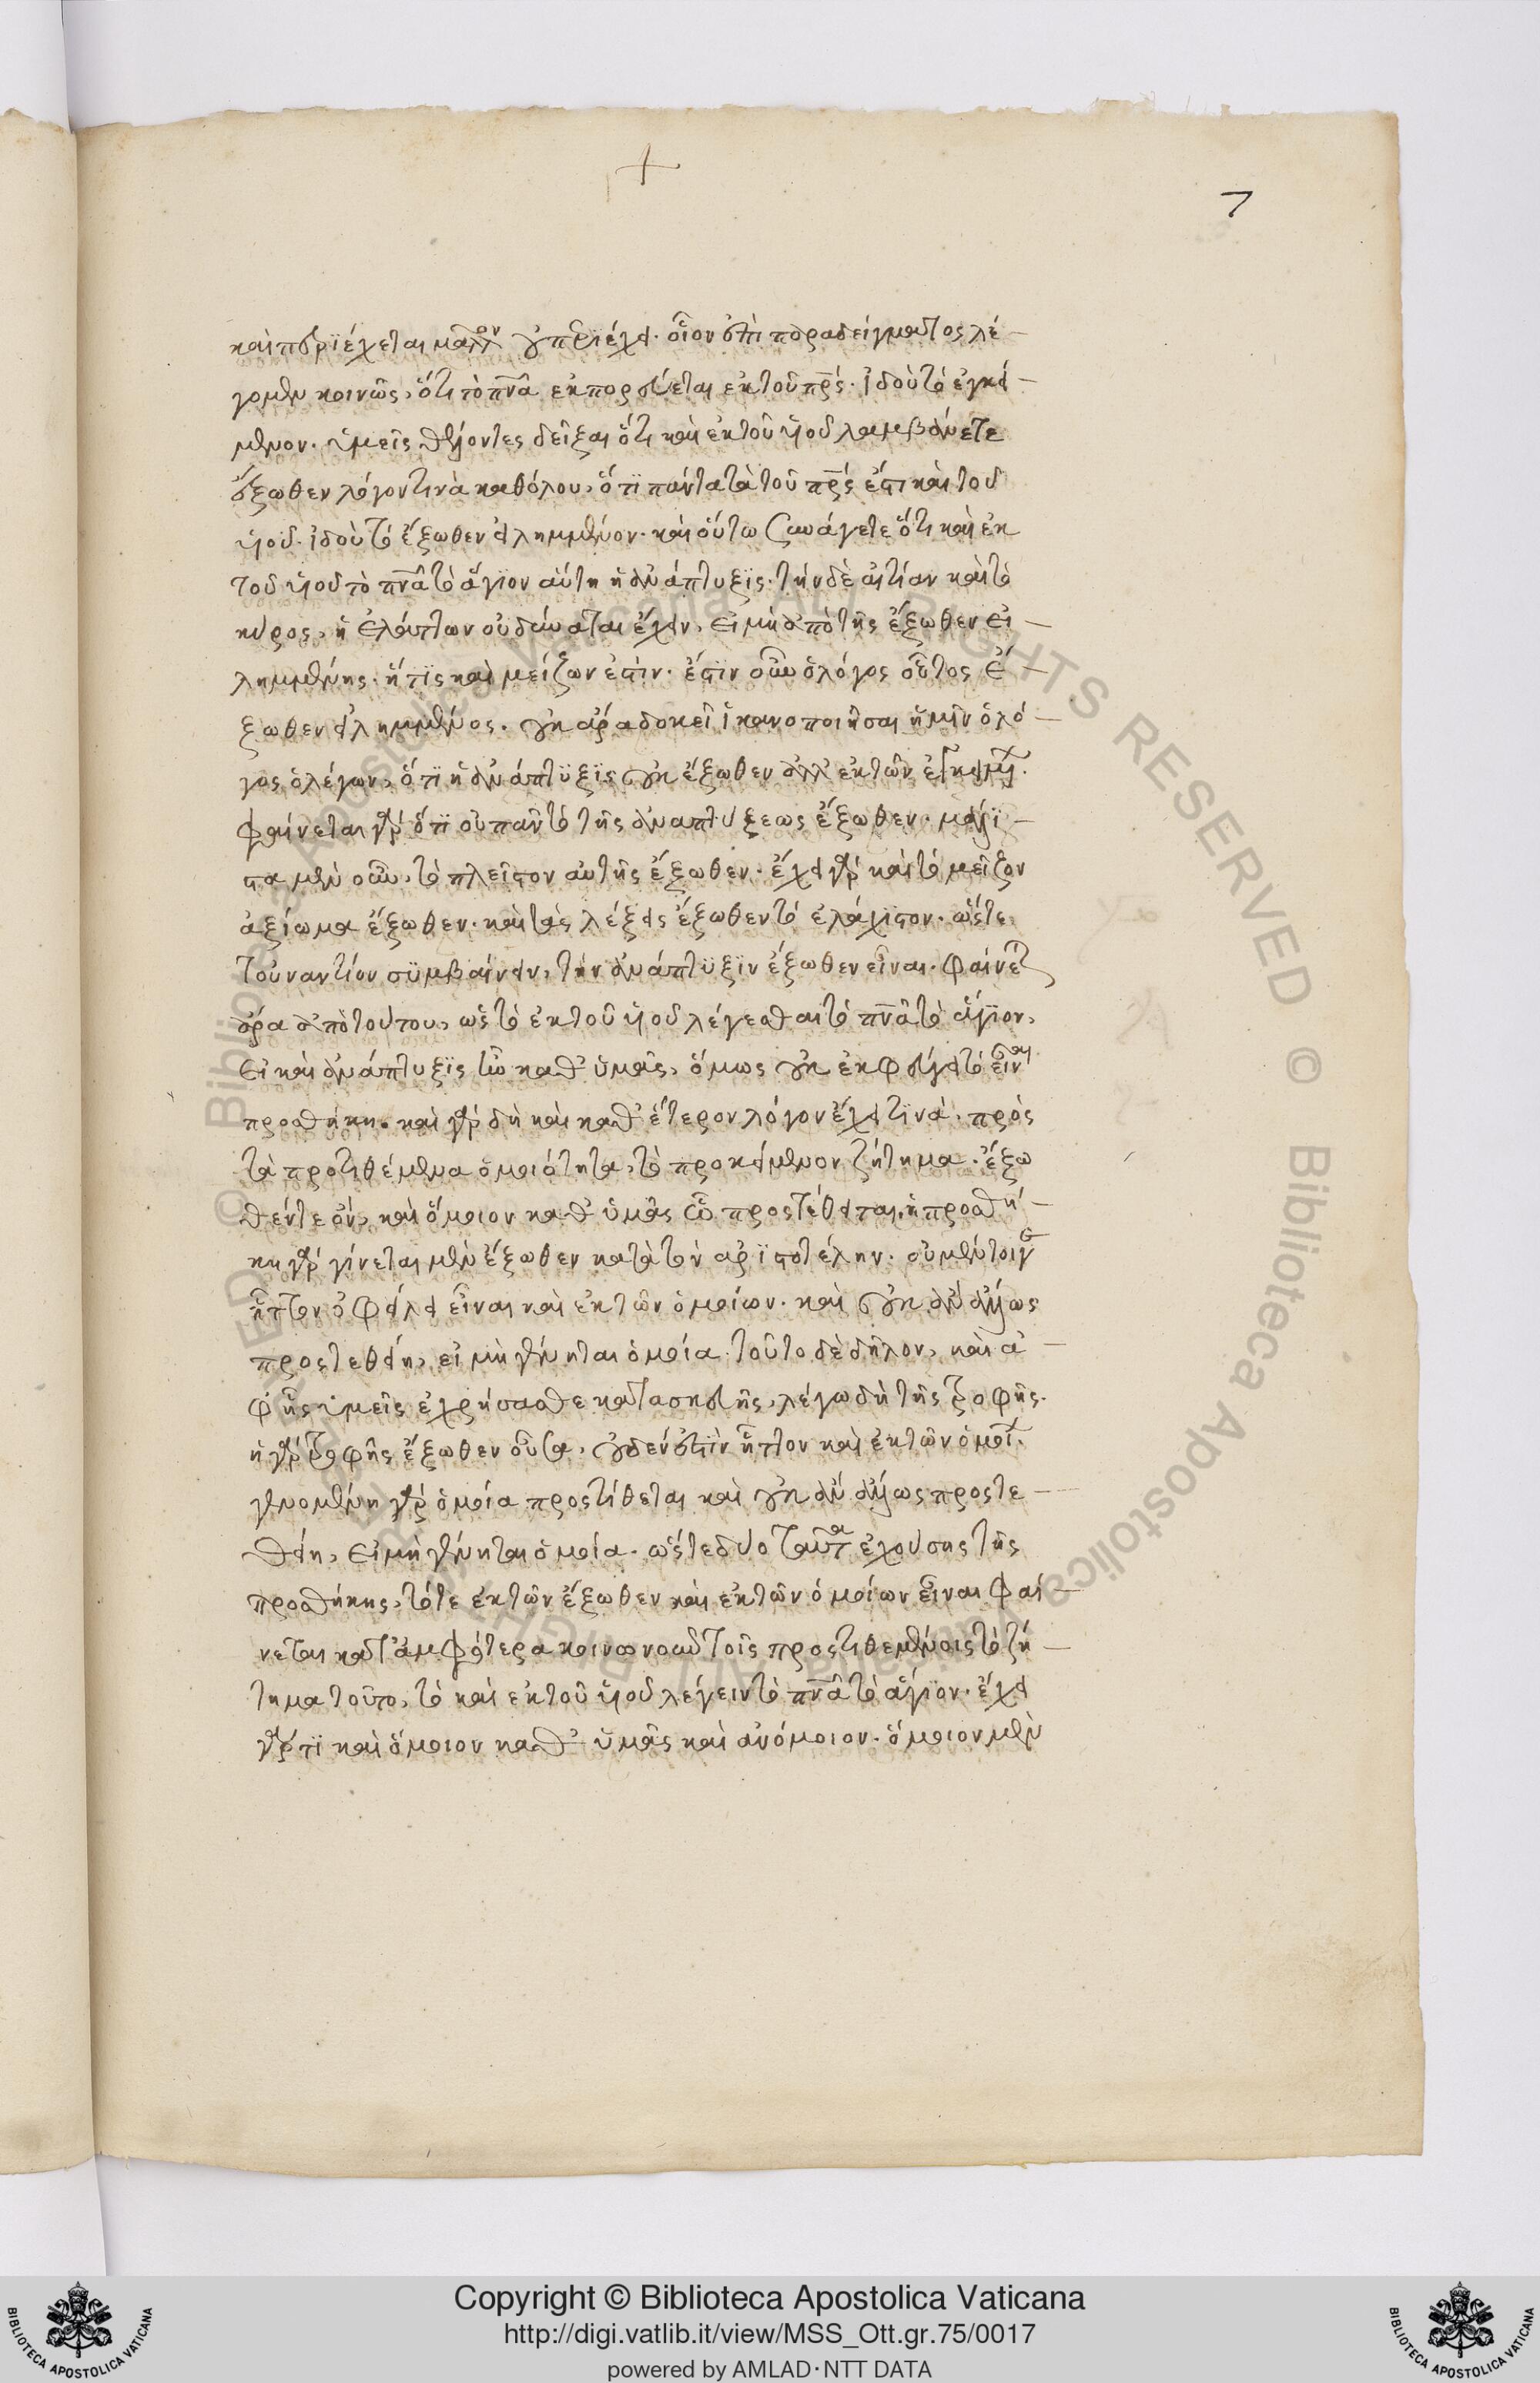 7
καὶ περϊέχεται μᾶλλον ἢ περϊέχει. οἷον ἐπὶ παραδείγματος λέ-
γομεν κοινῶς, ὅτι τὸ πνᾶ ἐκπορεύεται ἐκ τοῦ πρς. ἰδοὺ τὸ ἐγκεί-
μενον. ὑμεῖς θέλοντες δεῖξαι ὅτι καὶ ἐκ τοῦ υἱοῦ λαμβάνετε
ἔξωθεν λόγον τινὰ καθόλου, ὅτϊ πάντα τὰ τοῦ πρς ἐστι καὶ τοῦ
υἱοῦ. ἰδοὺ τὸ ἔξωθεν εἰλημμένον. καὶ οὕτω συνάγετε ὅτι καὶ ἐκ
τοῦ υἱοῦ τὸ πνᾶ τὸ ἅγϊον αὕτη ἡ ἀνάπτυξϊς. τὴν δὲ αἰτίαν καὶ τὸ
κῦρος, ἡ ἐλάττων οὐ δύναται ἔχειν, εἰ μὴ ἀπὸ τῆς ἔξωθεν εἰ-
λημμένης. ἥτϊς καὶ μείζων ἐστίν. ἔστϊν οὖν ὁ λόγος οὗτος ἔ-
ξωθεν εἰλημμένος. οὐκ ἄρα δοκεῖ ἱκανοποιῆσαι ἡμῖν ὁ λό-
γος ὁ λέγων, ὅτϊ ἡ ἀνάπτϋξϊς οὐκ ἔξωθεν ἀλλ' ἐκ τῶν ἐγκειμένων.
φαίνεται γὰρ ὅτϊ οὐ πᾶν τὸ τῆς ἀναπτύξεως ἔξωθεν. μάλϊ-
στα μὲν οὖν, τὸ πλεῖστον αὐτῆς ἔξωθεν. ἔχει γὰρ καὶ τὸ μεῖζον
ἀξίωμα ἔξωθεν. καὶ τὰς λέξεις ἔξωθεν τὸ ἐλάχιστον. ὥστε
τοὐναντίον σϋμβαίνειν, τὴν ἀνάπτϋξϊν ἔξωθεν εἶναι. φαίνεται
ἄρα ἀπὸ τούτου, ὡς τὸ ἐκ τοῦ υἱοῦ λέγεσθαι τὸ πνᾶ τὸ ἅγϊον,
εἰ καὶ ἀνάπτυξϊς ἦν καθ' ὑμᾶς, ὅμως οὐκ ἐκφεύγει τὸ εἶναι
προσθήκη. καὶ γὰρ δὴ καὶ καθ' ἕτερον λόγον ἔχει τϊνὰ, πρὸς
τὰ προτιθέμενα ὁμοιότητα, τὸ προκείμενον ζήτημα. ἔξω
θέν τε ὂν, καὶ ὅμοιον καθ' ὑμᾶς ᾧ προστέθειται. ἡ προσθή-
κη γὰρ γίνεται μὲν ἔξωθεν κατὰ τὸν ἀρϊστοτέλην. οὐ μέντοι γε
ἧττον ὀφείλει εἶναι καὶ ἐκ τῶν ὁμοίων. καὶ οὐκ ἂν ἄλλως
προστεθείη, εἰ μὴ γένηται ὁμοία. τοῦτο δὲ δῆλον, καὶ ἀ-
φ' ἧς ὑμεῖς ἐχρήσασθε κατασκευῆς, λέγω δὴ τῆς τροφῆς.
ἡ γὰρ τροφὴς ἔξωθεν οὖσα, οὐδέν ἐστϊν ἧττον καὶ ἐκ τῶν ὁμοίων.
γενομένη γὰρ ὁμοία προστίθεται καὶ οὐκ ἂν ἄλλως προστε-
θείη, εἰ μὴ γένηται ὁμοία. ὥστε δύο ταῦτα ἐχούσης τῆς
προσθήκης, τότε ἐκ τῶν ἔξωθεν καὶ ἐκ τῶν ὁμοίων εἶναι φαί-
νεται κατ' ἀμφότερα κοινωνοῦν τοῖς προστιθεμένοις τὸ ζή-
τημα τοῦτο, τὸ καὶ ἐκ τοῦ υἱοῦ λέγειν τὸ πνᾶ τὸ ἅγϊον. ἔχει
γάρ τϊ καὶ ὅμοιον καθ' ὑμᾶς καὶ ἀνόμοιον. ὅμοιον μὲν
Copyright © Biblioteca Apostolica Vaticana
http://digi.vatlib.it/view/MSS_Ott.gr.75/0017
powered by AMLAD·NTT DATA